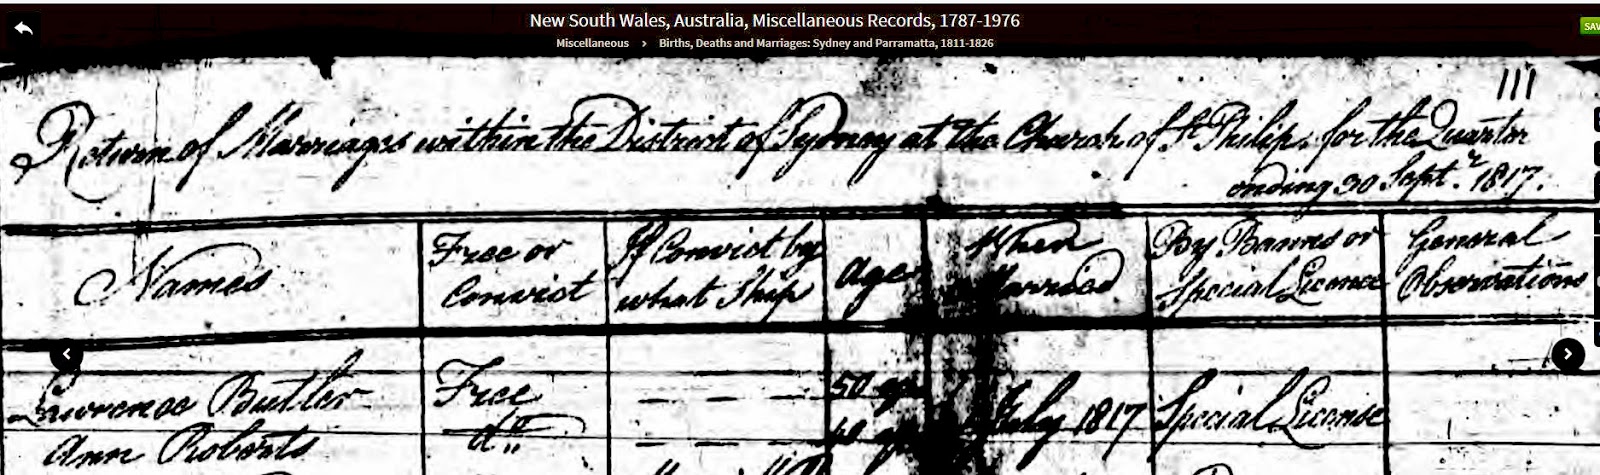 New South Wales, Australia, Miscellaneous Records, 1787-1976
Miscellaneous › Births, Deaths and Marriages: Sydney and Parramatta, 1811-1826
SAV
111
Return of Marriages within the District of Sydney at the Church of St Philip, for the Quarter
ending 30 Septr. 1817.
Names
Free or Convict
If Convict by what Ship
Age
When Married
By Banns or Special Licence
General Observations
Lawrence Butler Free — — — 50 July 1817 Special License
Ann Roberts do — — — 40